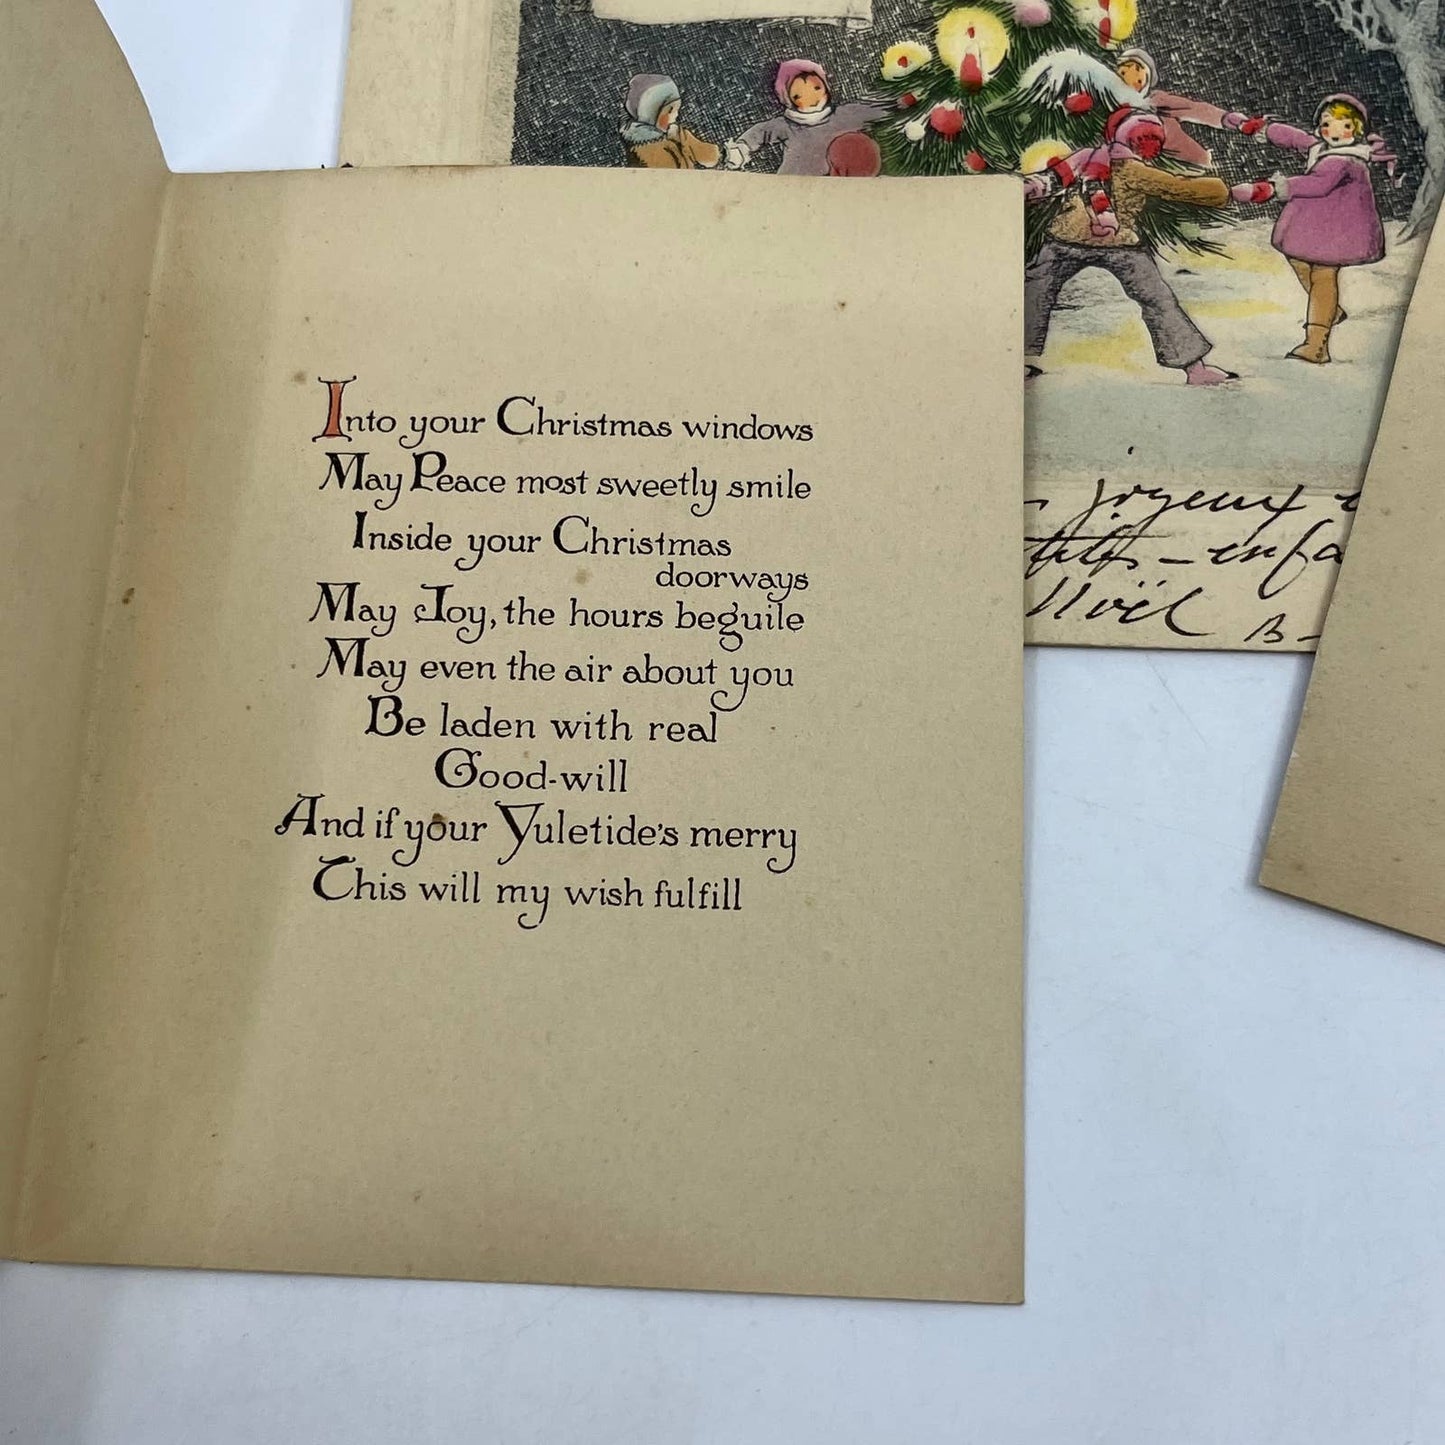 Into your Christmas windows
May Peace most sweetly smile
Inside your Christmas
doorways
May Joy, the hours beguile
May even the air about you
Be laden with real
Good-will
And if your Yuletide's merry
This will my wish fulfill
joyeux
Noël B-